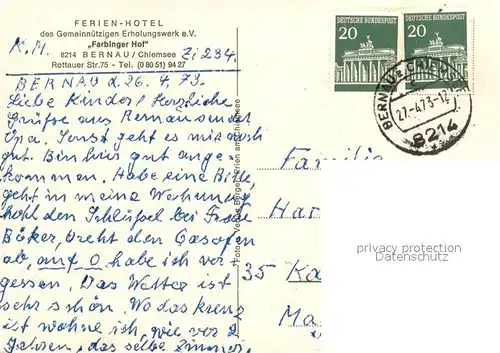 FERIEN-HOTEL
des Gemeinnützigen Erholungswerk e.V.
„Farbinger Hof"
8214 BERNAU / Chiemsee
Rottauer Str.75 - Tel. (0 80 51) 94 27
K.M.
Zi 234.
BERNAU d. 26. 4. 73.
Liebe Kinder! Herzliche
Grüße aus Bernau sendet
Opa. Sonst geht es mir noch
gut. Bin hir gut ange-
kommen. Habe eine Bitte
geht in meine Wohnung
hohl den Schlüßel bei Frau
Böker, dreht den Gasofen
ab, auf 0 habe ich ver-
gessen. Das Wetter ist
sehr schön. Wo das kreuz
ist wohne ich, wie vor 2
Jahren, das selbe Zimmer
DEUTSCHE BUNDESPOST
20
DEUTSCHE BUNDESPOST
20
BERNAU a. CHIEMSEE
27.-4.73-12
8214
Familie
Har
35 Ka
Ma
privacy protection
Datenschutz